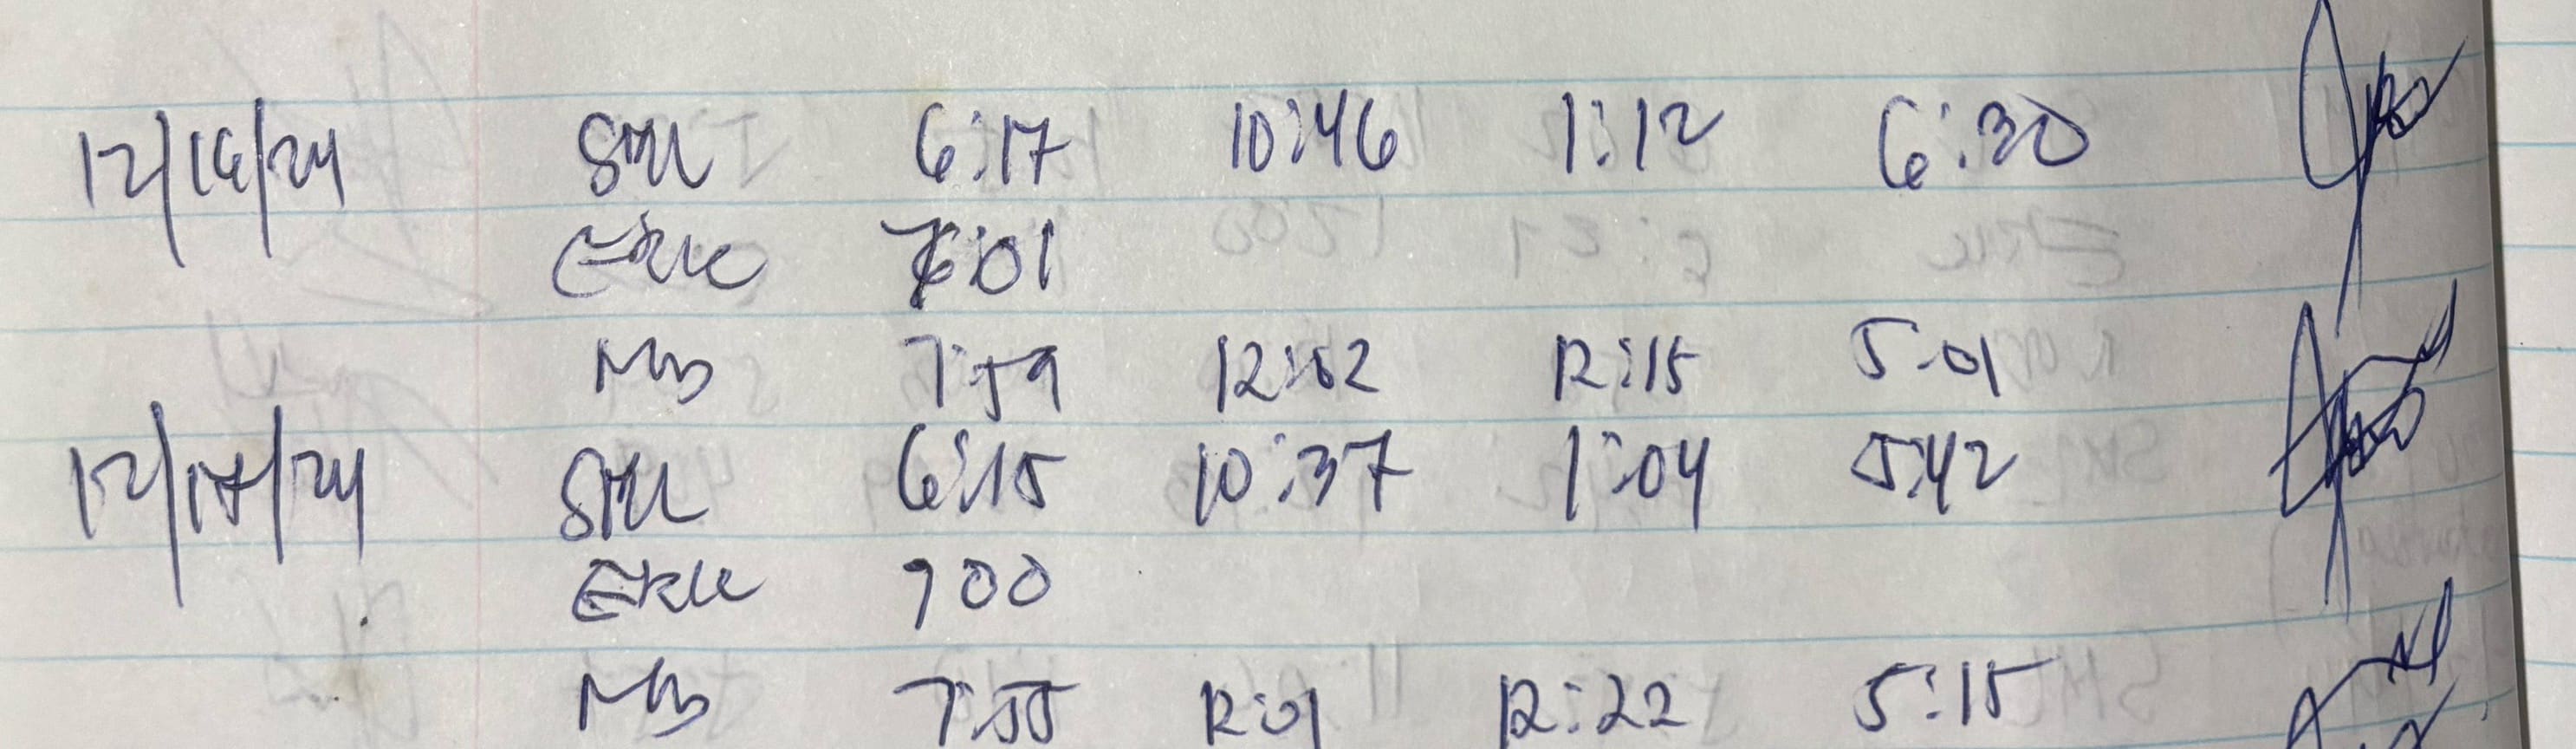 12/16/24 SML 6:17 10:46 1:12 6:30
Eric 7:01
MB 7:59 12:02 12:15 5:01
12/17/24 SML 6:15 10:37 1:04 5:42
Eric 700
MB 7:55 12:01 12:22 5:15